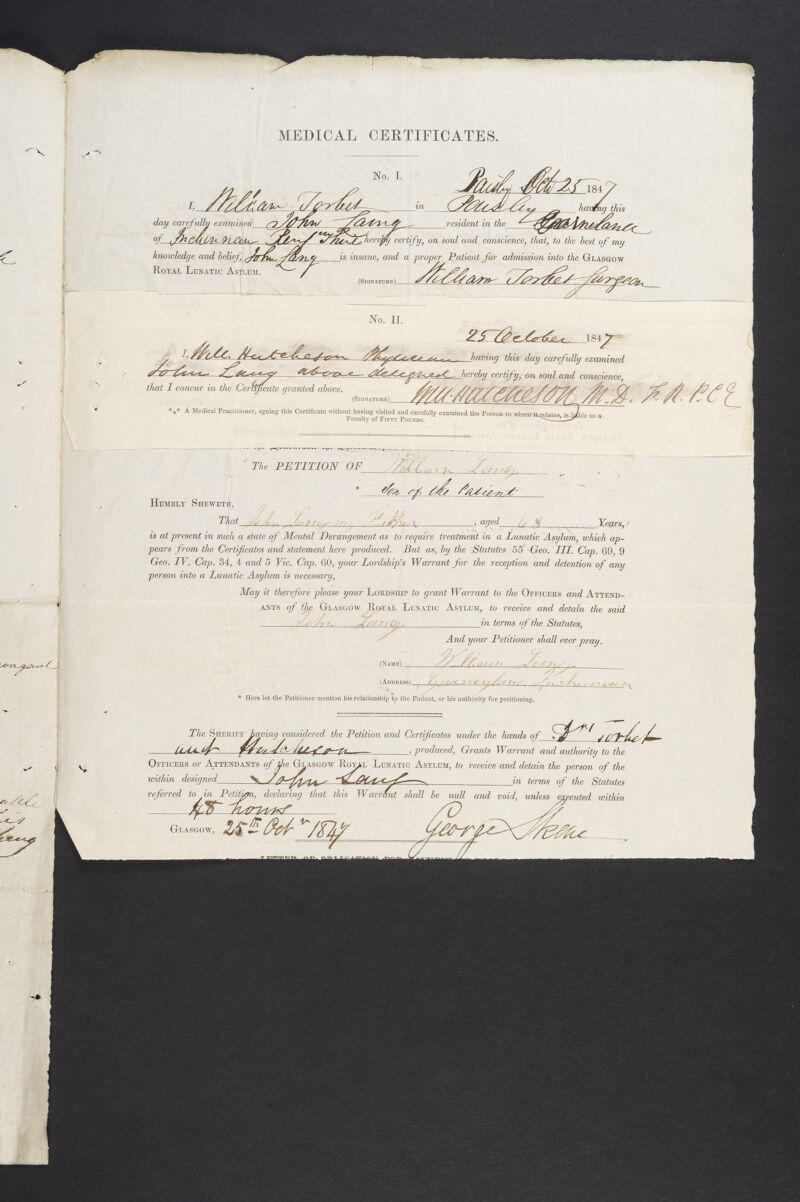 MEDICAL CERTIFICATES.
No. I.
Paisley Oct 25 1847
I, William Torbet in Paisley having this
day carefully examined John Laing resident in the
of Inchinnan hereby certify, on soul and conscience, that, to the best of my
knowledge and belief, John Lang is insane, and a proper Patient for admission into the Glasgow
Royal Lunatic Asylum.
(Signature) William Torbet Surgeon
No. II.
25 October 1847
I, Will. Hutcheson Physician having this day carefully examined
John Lang above designed hereby certify, on soul and conscience,
that I concur in the Certificate granted above.
(Signature) Wm. Hutcheson M.D. F.R.P.C.E
*** A Medical Practitioner, signing this Certificate without having visited and carefully examined the Person to whom it relates, is liable to a
Penalty of Fifty Pounds.
The PETITION OF William Lang
* Son of the Patient
Humbly Sheweth,
That John Lang my Father, aged 68 Years,
is at present in such a state of Mental Derangement as to require treatment in a Lunatic Asylum, which ap-
pears from the Certificates and statement here produced. But as, by the Statutes 55 Geo. III. Cap. 69, 9
Geo. IV. Cap. 34, 4 and 5 Vic. Cap. 60, your Lordship's Warrant for the reception and detention of any
person into a Lunatic Asylum is necessary,
May it therefore please your Lordship to grant Warrant to the Officers and Attend-
ants of the Glasgow Royal Lunatic Asylum, to receive and detain the said
John Lang in terms of the Statutes,
And your Petitioner shall ever pray.
(Name) William Lang
(Address) Inchinnan
* Here let the Petitioner mention his relationship to the Patient, or his authority for petitioning.
The Sheriff having considered the Petition and Certificates under the hands of Drs Torbet
and Hutcheson, produced, Grants Warrant and authority to the
Officers or Attendants of the Glasgow Royal Lunatic Asylum, to receive and detain the person of the
within designed John Lang in terms of the Statutes
referred to in Petition, declaring that this Warrant shall be null and void, unless executed within
48 hours
Glasgow, 25th Octr 1847 George Skene